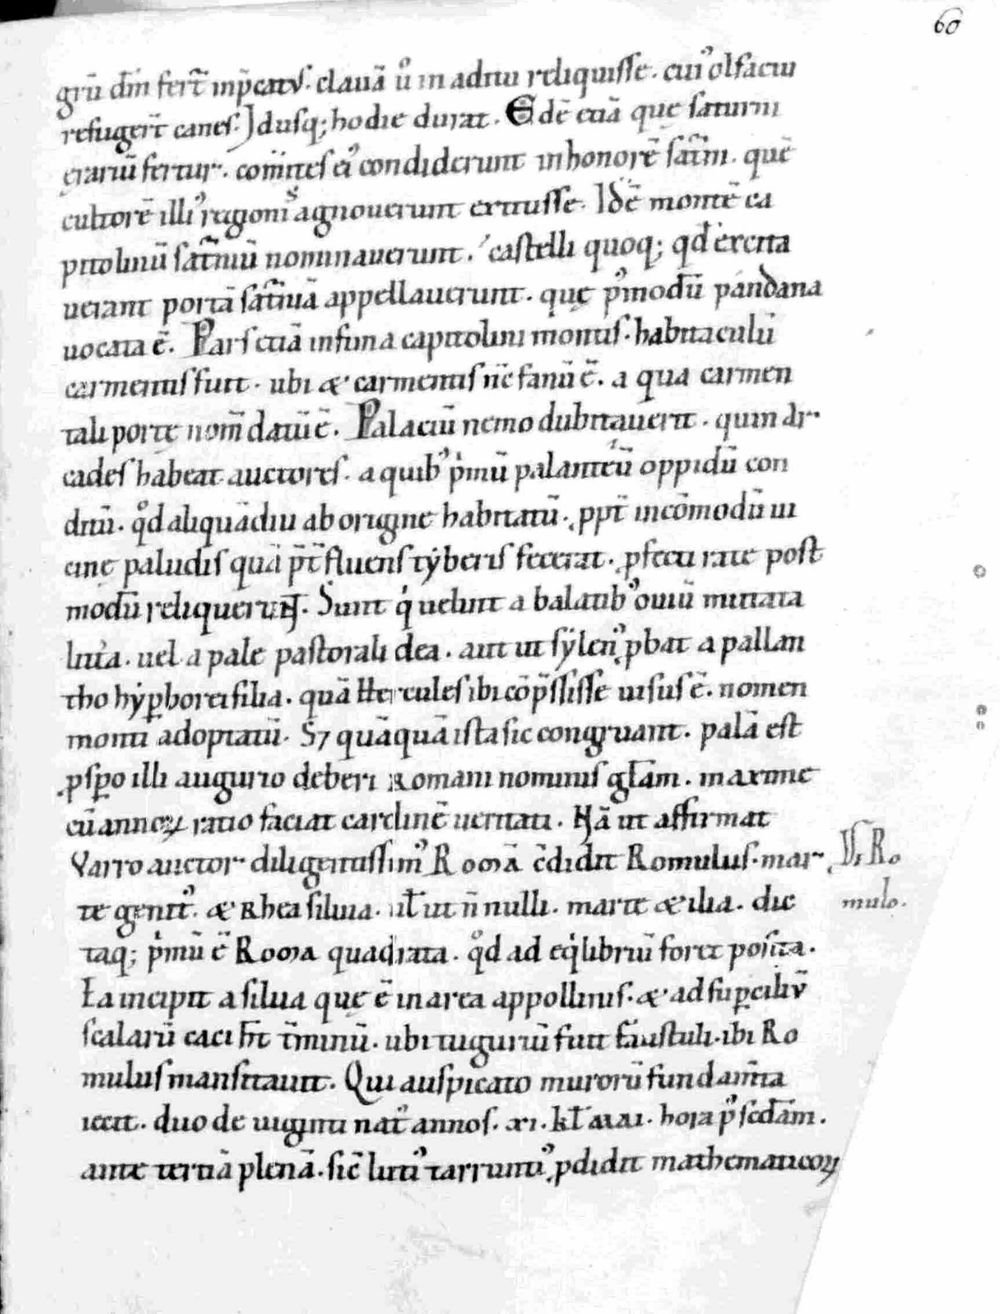 60
grū dm̄ fert̄ inp̄catus. clauā u° in aditu reliquisse. cui' olfactu
refugert̄ canes. Idusq; hodie durat. Edē etiā quę saturni
ęrariū fertur. com̄ites ei' condiderunt in honorē sat̄ni. quē
cultorē illi' regionis agnouerunt extitisse. Idē montē ca
pitolinū sat̄niū nominauerunt. castelli quoq; qd̄ excita
uerant portā sat̄niā appellauerunt. quę p'modū pandana
uocata ē. Pars etiā infima capitolini montis. habitaculū
carmentis fuit. ubi & carmentis nc̄ fanū ē. a qua carmen
tali portę nom̄ datū ē. Palatiū nemo dubitauerit. quin ar
cades habeat auctores. a quib' p'mū palanteū oppidū con
ditū. qd aliquādiu aborigine habitatū. ppt̄ incōmodū ui
cinę paludis quā p̄t̄fluens tyberis fecerat. pfecti rate post
modū reliquerunt. Sunt q' uelint a balatib' ouiū mutata
lit̄a. uel a pale pastorali dea. aut ut sylen' pbat a pallan
tho hyperborei filia. quā Hercules ibi cōp̄ssisse uisus ē. nomen
monti adoptatū. S7 quāquā ista sic congruant. palā est
pspo illi augurio deberi Romani nominis gl̄am. maxime
cū annoꝝ ratio faciat cardinē ueritati. Nā ut affirmat
Varro auctor diligentissim' Romā c̄didit Romulus. mar
te genit'. & Rhea siluia. ut̄ ut n̄nulli. marte & ilia. dic
taq; p'mū ē Roma quadrata. qd ad eq'libriū foret posita.
Ea incipit a silua quę ē in area appollinis. & ad supciliū
scalarū caci ht̄ t̄minū. ubi tuguriū fuit faustuli. ibi Ro
mulus mansitauit. Qui auspicato murorū fundam̄ta
iecit. duo de uiginti nat' annos. xi. kl̄ mai. hora p' scdam.
ante tertiā plenā. sic̄ luti' tarrunti' pdidit mathematicoꝝ
Ro
mulo.